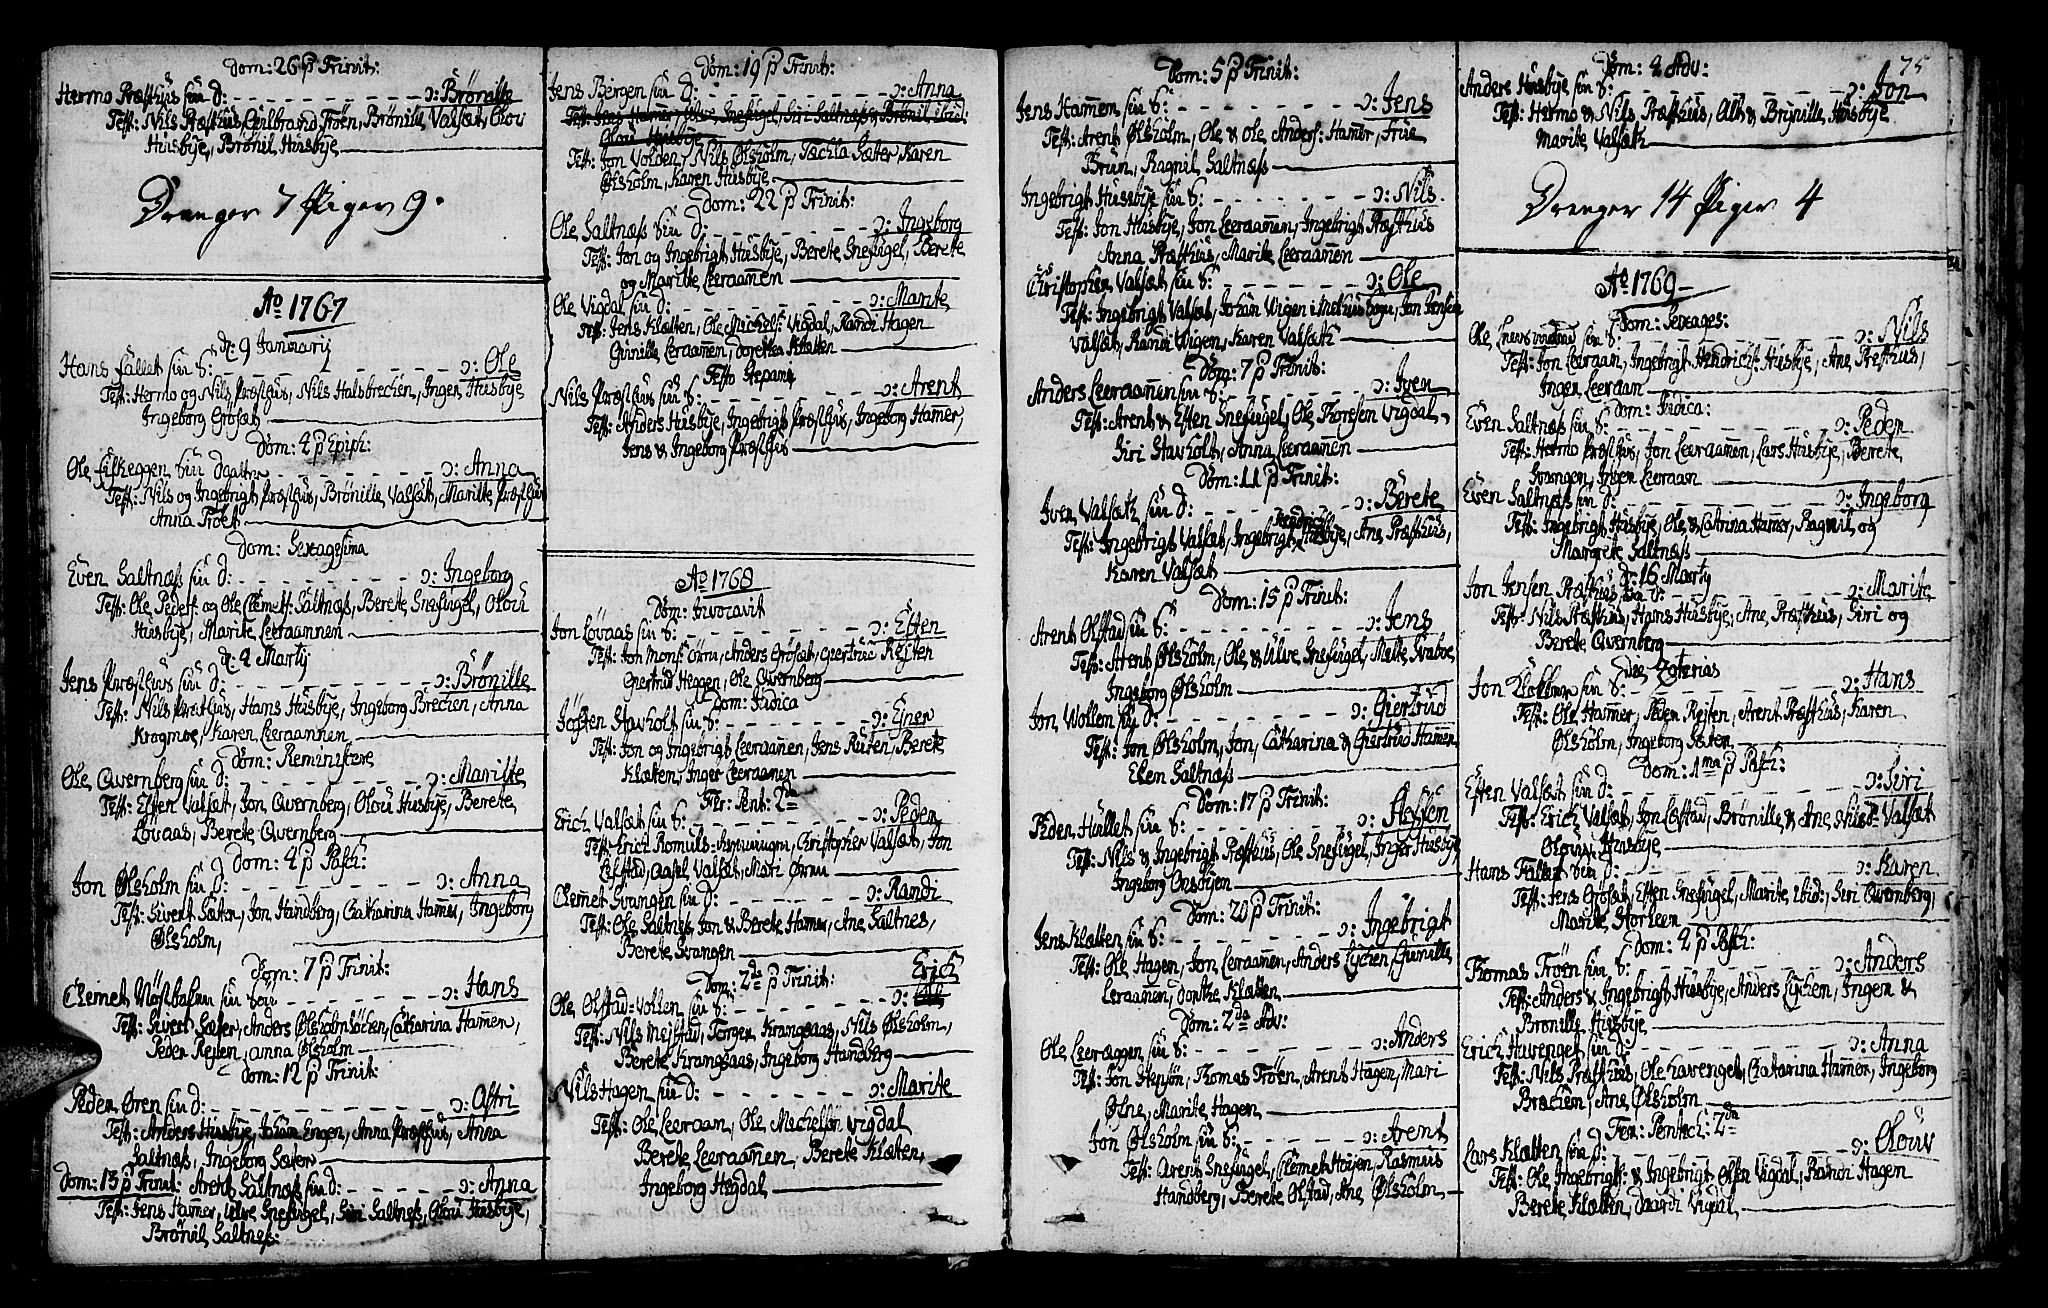 Dom: 26 p Trinit:
Hermo Præsthus sin d: ɔ: Brønille
Test: Nils Præsthus, Troen, Brønille Valsæt, Olou
Husbÿe, Brønil Husbÿe
Drenger 7 Piger 9.
Ao 1767
d: 9 Januarÿ
Hans Fallet sin S: ɔ: Ole
Test: Hermo og Nils Præsthus, Nils Halsbrechen, Inger Husbÿe
Ingeborg Grosæt
Dom: 2 p Epiph:
Ole sin Daatter ɔ: Anna
Test: Nils og Ingebrigt Præsthus, Brønille Valsæt, Marite Præsthus
Anna Troet
Dom: Sexagesima
Even Saltnæss sin d: ɔ: Ingeborg
Test: Ole Peders: og Ole Clemets: Saltnæss, Berete Snefugel, Olou
Husbÿe, Marite Leeraannen
d: 2 Martÿ
Jens Præsthus sin d: ɔ: Brønille
Test: Nils Præsthus, Hans Husbÿe, Ingeborg Brechen, Anna
Krogmoe, Karen Leeraannen
Dom: Reministere
Ole Qvernberg sin d: ɔ: Marite
Test: Esten Valsæt, Jon Qvernberg, Olou Husbÿe, Berete
Lovaas, Berete Qvernberg
Dom: 4 p Pasch:
Jon Ølsholm sin d: ɔ: Anna
Test: Sivert Sæter, Jon Handberg, Catharina Hammer, Ingeborg
Ølsholm,
Dom: 7 p Trinit:
Clemet sin Søn ɔ: Hans
Test: Sivert Sæter, Anders Ølsholm, Catharina Hammer,
Peder Rejten, Anna Ølsholm
Dom: 12 p Trinit:
Peder Øren sin d: ɔ: Astri
Test: Anders Husbÿe, Johan Engen, Anna Præsthus, Anna
Saltnæss, Ingeborg Sæter
Dom: 13 p Trinit: Arent Saltnæss sin d: ɔ: Anna
Test: Jens Hamer, Ulve Snefugel, Siri Saltness, Olou Husbÿe,
Brønil Saltness:
Dom: 19 p Trinit:
Jens Bergen sin d: ɔ: Anna
Test: Jens Hammer, Ulve Snefugel, Siri Saltness & Brønil ibid:
Olou Husbÿe
Test: Jon Volden, Nils Ølsholm, Sæter Karen
Ølsholm, Karen Husbÿe
Dom: 22 p Trinit:
Ole Saltnæs sin d: ɔ: Ingeborg
Test: Jon og Ingebrigt Husbÿe, Berete Snefugel, Berete
og Maritte Leeraamen
Ole Vigdal sin d: ɔ: Marite
Test: Jens Klæten, Ole Michels: Vigdal, Randi Hagen
Gunille Leeraamen, Dorethe Klæten
Festo Stepani
Nils Præsthus sin S: ɔ: Arent
Test: Anders Husbÿe, Ingebrigt Præsthus, Ingeborg Hamer,
Jens & Ingeborg Præsthus
Ao 1768
Dom: Invocavit
Jon Lovaas sin S: ɔ: Esten
Test: Jon Mons: Örru, Anders Grosæt, Giertruc Rejten
Giertrud Heggen, Ole Qvernberg
Dom: Judica
Josten Stavholt sin S: ɔ: Ejner
Test: Jon og Ingebrigt Leeraamen, Jens Ruten, Berete
Klæten, Inger Leeraamen
Fer: Pent: 2da
Erich Valsæt sin S: ɔ: Peder
Test: Erich Romuls: , Christopher Valsæt, Jon
Lefstad, Aasel Valsæt, Mari Ørru
Clemet Svangen sin d: ɔ: Randi
Test: Ole Saltnes, Jon & Berete Hamer, Ane Saltnes,
Berete Svangen
Dom: 2da p Trinit: Erich
Ole Olstad-Vollen sin S: ɔ:
Test: Nils Mejstad, Torger Krangsaas, Nils Ølsholm,
Berete Krangsaas, Ingeborg Handberg
Nils Hagen sin d: ɔ: Marite
Test: Ole Leeraam, Ole Michelsön Vigdal
Berete Leeraamen, Berete Klæten,
Ingeborg Hegdal
Dom: 5 p Trinit:
Jens Hammem sin S: ɔ: Jens
Test: Arent Ølsholm, Ole & Ole Anders: Hamer, Frue
Brun, Ragnil Saltnæss
Ingebrigt Hussbÿe sin S: ɔ: Nils.
Test: Jon Husbÿe, Jon Leeraamen, Ingebrigt Præsthus
Anna Præsthus, Marite Leeraamen
Christopher Valsæt sin S: ɔ: Ole
Test: Ingebrigt Valsæt, Johan Wigen i Melhusbogn, Jon Jonsen
Valsæt, Randi Wigen, Karen Valsæth
Dom: 7 p Trinit:
Anders Leeraamen sin S: ɔ: Iver
Test: Arent & Esten Snefugel, Ole Thoresen Vigdal,
Siri Stavholt, Anna Leeraamen
Dom: 11 p Trinit:
Iver Valsæth sin d: ɔ: Berete
Test: Ingebrigt Valsæt, Ingebrigt Hendrichs: Husbÿe, Ane Præsthuus,
Karen Valsæt
Dom: 15 p Trinit:
Arent Olstad sin S: ɔ: Jens
Test: Arent Ølsholm, Ole & Ulve Snefugel, Melte Svaboe,
Ingeborg Ølsholm
Jon Wollem sin d: ɔ: Giertrud
Test: Jon Ølsholm, Jon, Catharina & Giertrud Hamer
Elen Saltnæss
Dom: 17 p Trinit:
Peder Hullet sin S: ɔ:
Test: Nils & Ingebrigt Præsthus, Ole Snefugel, Inger Husbÿe
Ingeborg Onsøjen
Dom: 20 p Trinit:
Jens Klæten sin S: ɔ: Ingebrigt
Test: Ole Hagen, Jon Leeraamen, Anders Lÿchen, Gunille
Leeraamen, Dorthe Klæten
Dom: 2da Adv:
Ole Leeræggen sin S: ɔ: Anders
Test: Jon Stepsön, Thomas Trøen, Arent Hagen, Mari
Ølne, Marite Hagen
Jon Ølsholm sin S: ɔ: Arent
Test: Arent Snefugel, Clemet Hojen, Rasmus
Handberg, Berete Olstad, Ane Ølsholm
75
Dom: 2 Adv:
Anders Husbÿe sin S: ɔ: Jon
Test: Hermo & Nils Præsthus, & Brynille Husbÿe
Marite Valsæth
Drenger 14 Piger 4
Ao 1769
Dom: Sexages:
Ole sin S: ɔ: Nils
Test: Jon Leeraam, Ingebrigt Hendrichs: Husbÿe, Ane Presthus,
Inger Leeraam
Dom: Judica:
Even Saltnæss sin S: ɔ: Peder
Test: Hermo Præsthus, Jon Leeraamen, Lars Husbÿe, Berete
Inger Leeraan
Even Saltnæss sin d: ɔ: Ingeborg
Test: Ingebrigt Husbÿe, Ole & Catrina Hamer, Ragnil og
Margrete Saltnæss
d: 16 Martÿ
Jon Jensen Præsthus sin d: ɔ: Marite
Test: Nils Præsthus, Hans Husbÿe, Ane Præsthus, Siri og
Berete Qvernberg
Jon Klokker sin S: ɔ: Hans
Test: Ole Hammer, Peder Rejten, Arent Præsthus, Karen
Ølsholm, Ingeborg Sæter
Dom: 1ma p Pasch:
Esten Valsæt sin d: ɔ: Siri
Test: Erich Valsæt, Jon Lefstad, Brønille & Ane Valsæt
Olouv Husbÿe
Hans Fallet sin d: ɔ: Karen
Test: Jens Grosæt, Esten Snefugel, Marite ibid:, Siri Qvernberg,
Marite Storleen
Dom: 2 p Pasch:
Thomas Trøen sin S: ɔ: Anders
Test: Anders & Ingebrigt Husbÿe, Anders Lÿchen, Inger &
Brønille Husbÿe
Erich Havenget sin d: ɔ: Anna
Test: Nils Præsthus, Ole Havenget, Catharina Hamer, Ingeborg
Brechem, Ane Ølsholm
Fer: Pentech: 2da
Lars Klæten sin d: ɔ: Olouv
Test: Ole Ingebrigt: & Ingebrigt Olsen Vigdal, Hagen
Berete Klæten, Vigdal